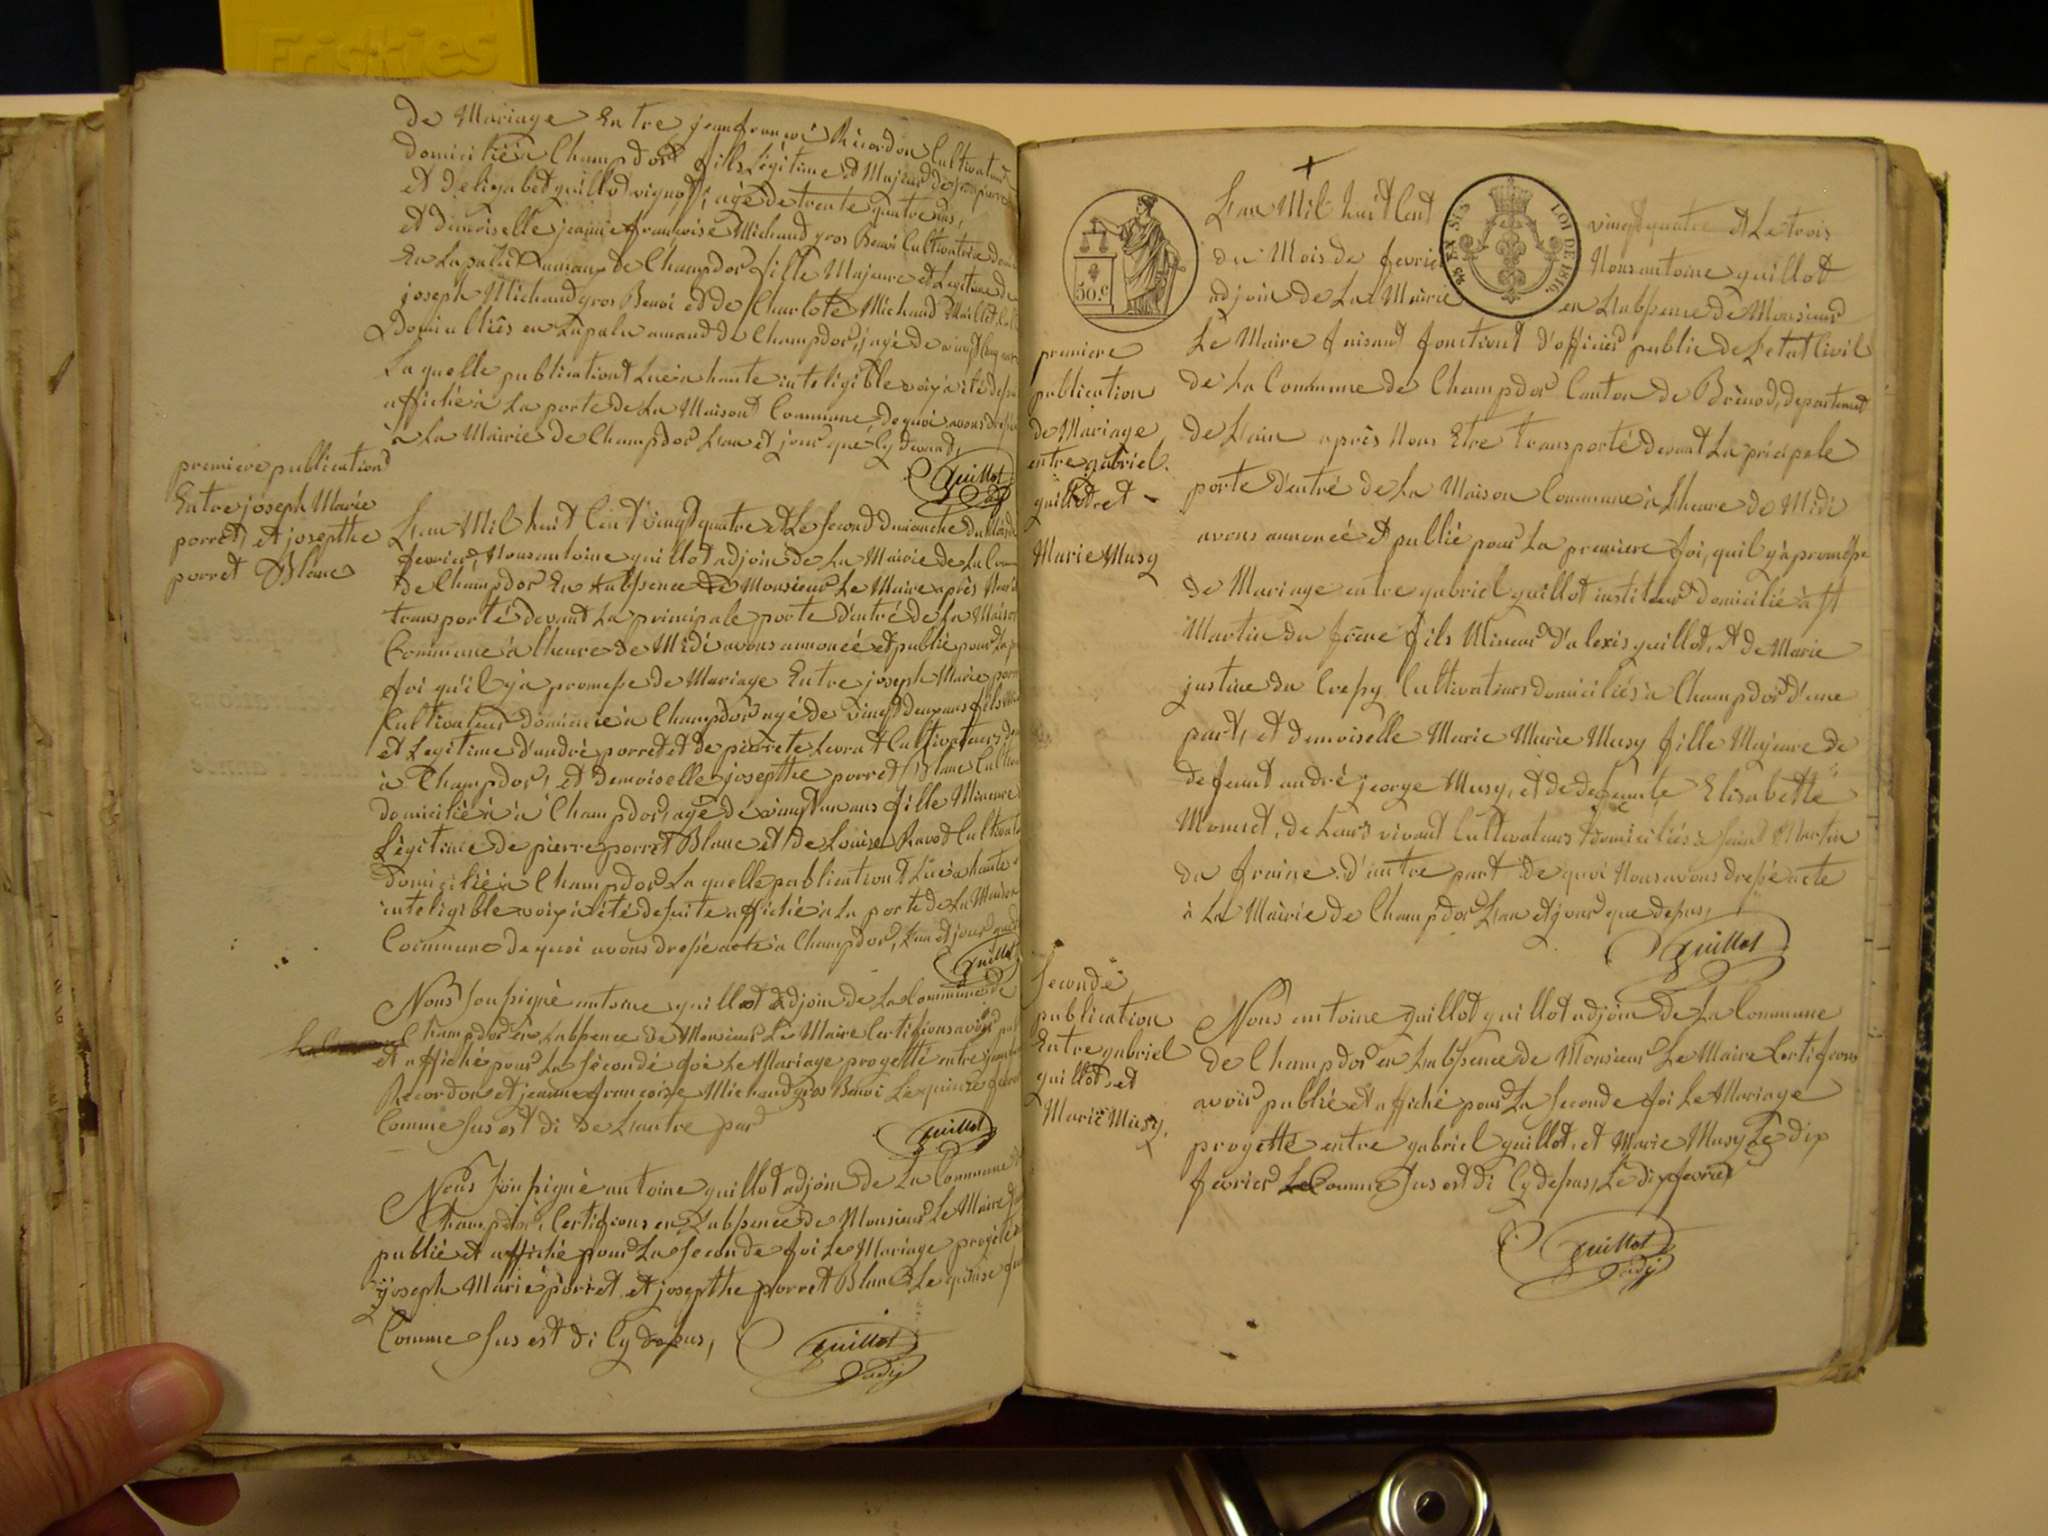 Friskies
de Mariage Entre jean françoi Récordon Cultivateur
domicilié à Champdor fills Légitime et Majeur de jean pierre
et d'elizabet guillot vignot, agé de trente quatre ans,
et demoiselle jeanne françoise Michaud gros Benoi Cultivatrice
En Lapalud amand de Champdor fille Majeure et Legitime de
joseph Michaud gros Benoi et de Charlote Michaud Maillet
Domiciliés en Lapalu amand de Champdor, agé de vingt cinq ans
La quelle publication Lue à haute inteligible voix à été de suite
affiché à La porte de La Maison Commune, de quoi avons dressé
à La Mairie de Champdor Lan et jour que Cy devant,
Guillot
adj
premiere publication
Entre joseph Marie
porret, et josepthe
porret Blanc
Lan Mil huit Cent vingt quatre et Le second dimanche du Mois de
fevrier, Nous antoine guillot adjoin de La Mairie de La Com
de Champdor En Labsence de Monsieur Le Maire après Nous
transporté devant La principale porte d'entré de La Maison
Commune à lheure de Midi avons annoncé et publié pour La p
foi qu'il y'a promesse de Mariage Entre joseph Marie porr
Cultivateur domicilié à Champdor agé de vingt deux ans fils
et Legitime d'andré porret et de pierrete Levrat Cultivateurs
à Champdor, et demoiselle josepthe porret Blanc Cultiv
domicilié à à Champdor, agé de vingt un ans fille Mineure
Légitime de pierre porret Blanc et de Louise Ravot Cultivate
domicilié à Champdor La quelle publication Lue à haute
inteligible voix à été de suite affiché à La porte de La Maison
Commune de quoi avons dressé acte à Champdor, Lan et jour que
Guillot
Nous soussigné antoine guillot adjoin de La Commune de
Champdor En Labsence de Monsieur Le Maire Certifions avoir pu
et affiché pour La Séconde foi Le Mariage progetté entre jean
Recordon et jeanne françoise Michaud gros Benoi Le quinze fevr
Comme sus est di de Lautre par
Guillot
Nous soussigné antoine guillot adjoin de La Commune
Champdor, Certifions en Labsence de Monsieur Le Maire
publié et affiché pour La Seconde foi Le Mariage progété
joseph Marie porret, et josepthe porret Blanc Le quinse
Comme sus est di Cy dessus,
Guillot
adj
50.c
45 EN SUS LOI DE 1816.
premiere
publication
de Mariage
entre gabriel
guillot et
Marie Musy
Lan Mil huit Cent vingt quatre et Le trois
du Mois de fevrier Nous antoine guillot
adjoin de La Mairie en Labsence de Monsieur
Le Maire faisant fonctiont d'officier public de Letat Civil
de La Commune de Champdor Canton de Brénod, departement
de Lain après Nous Etre transporté devant La pricipale
porte d'entré de La Maison Commune à Lheure de Midi
avons annoncé et publié pour La premiere foi, quil y'a promesse
de Mariage entre gabriel guillot instituteur domicilié à St
Martin du frêne fils Mineur d'alexis guillot, et de Marie
justine du Crepy Cultivateurs domiciliés à Champdor d'une
part, et demoiselle Marie Marie Musy fille Majeure de
defeunt andré jeorge Musy, et de defeunte Elisabette
Mouret, de Leurs vivant Cultivateurs domiciliés à Saint Martin
du fraine d'autre part de quoi Nous avons dressé acte
à La Mairie de Champdor Lan et jour que dessus,
Guillot
Seconde
publication
Entre gabriel
guillot, et
Marie Musy,
Nous antoine guillot guillot adjoin de La Commune
de Champdor en Labsence de Monsieur Le Maire Certifions
avoir publié et affiché pour La Seconde foi Le Mariage
progetté entre gabriel guillot, et Marie Musy Le dix
fevrier Comme sus est di Cy dessus, Le dix fevrier
Guillot
adj